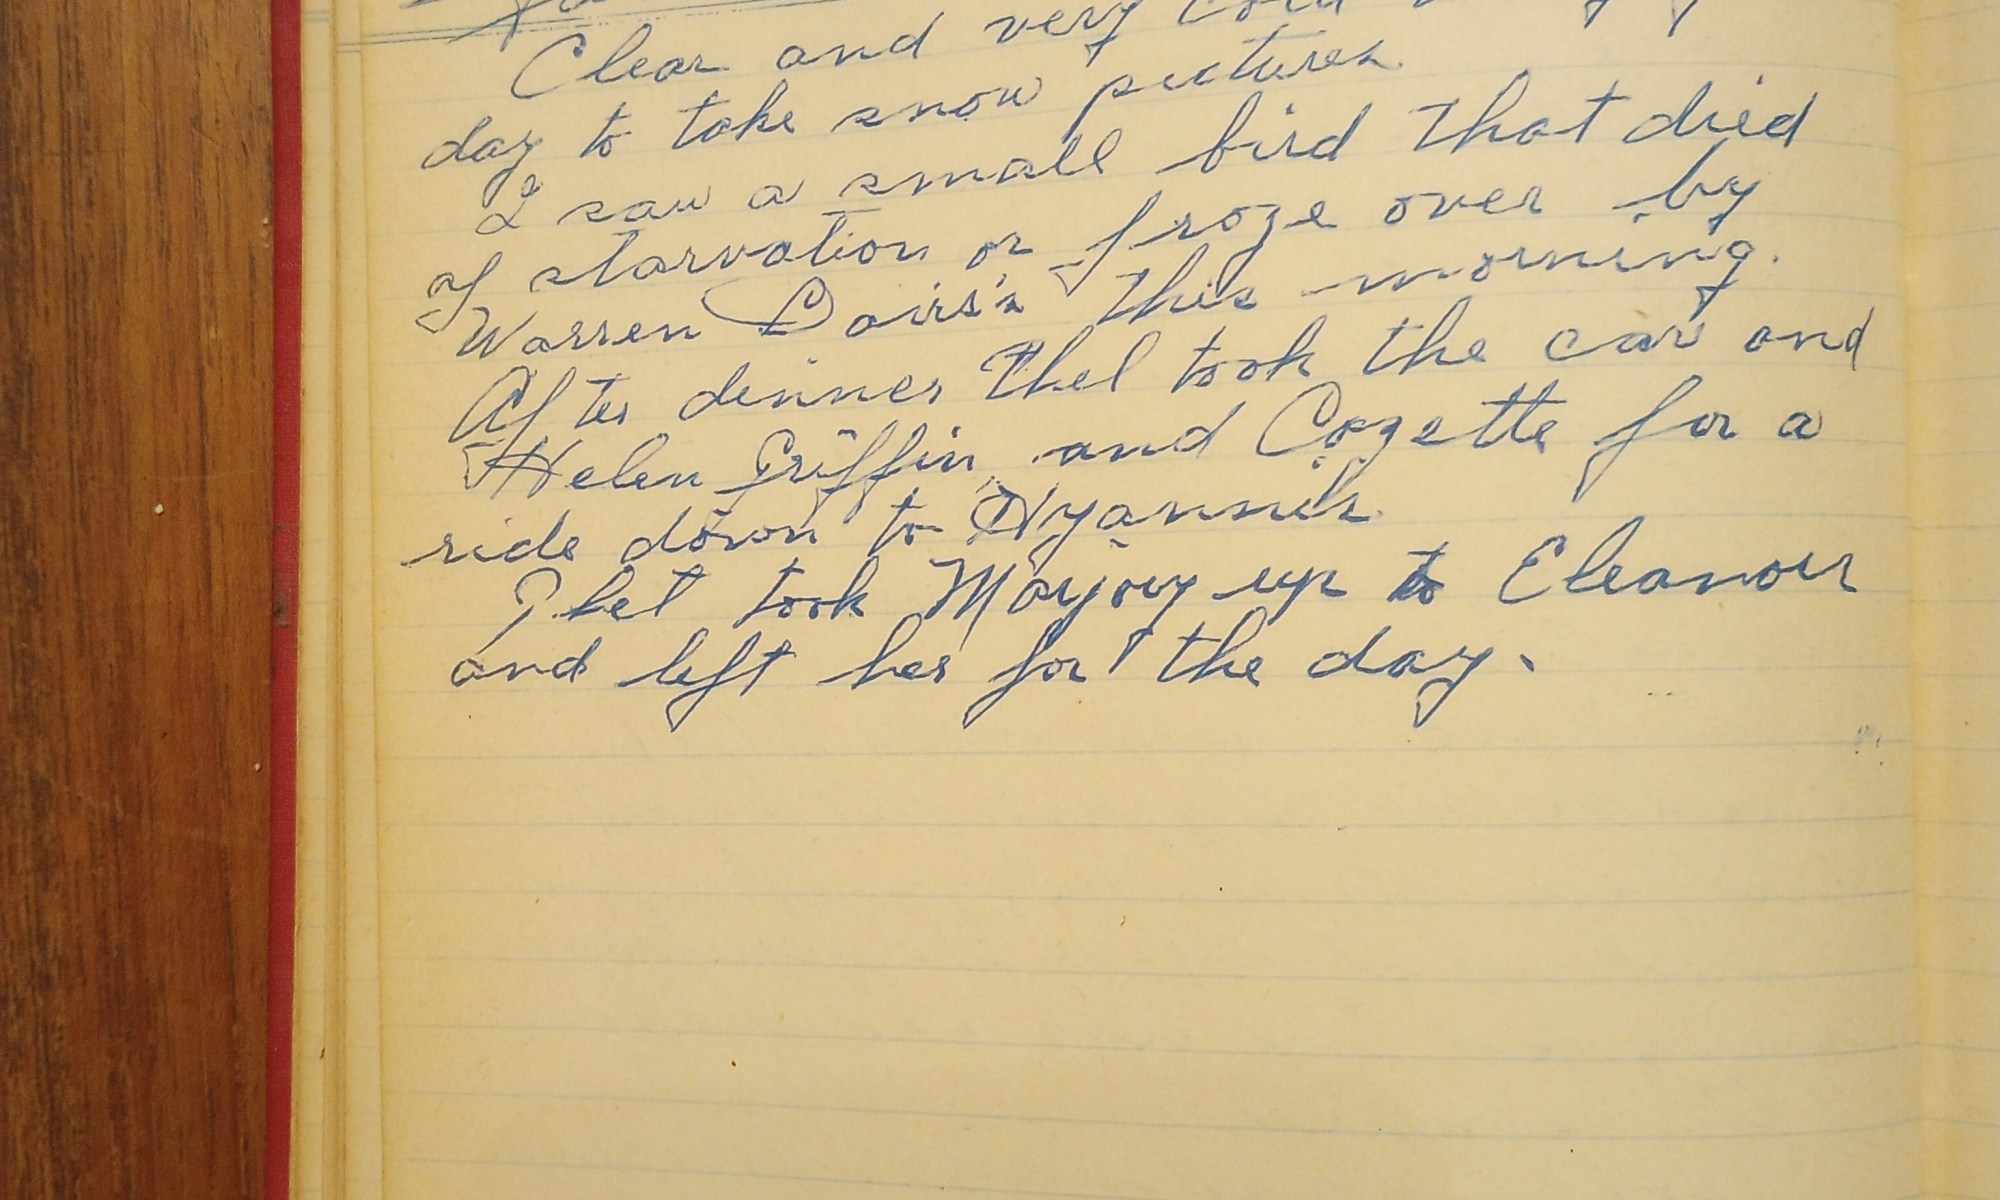 Clear and very cold
day to take snow pictures.
I saw a small bird that died
of starvation or froze over by
Warren this morning.
After dinner Thel took the car and
Helen Griffin and Cozette for a
ride down to Hyannis.
Thel took Marjory up to Eleanor
and left her for the day.